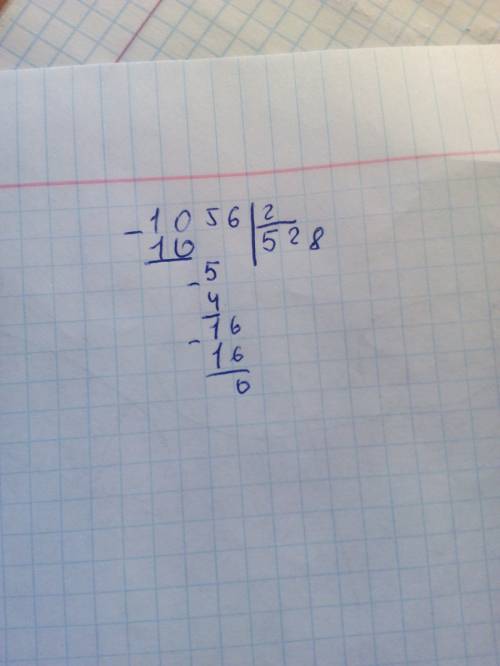 - 1056 | 2
10 | 528
- 5
4
- 16
16
0